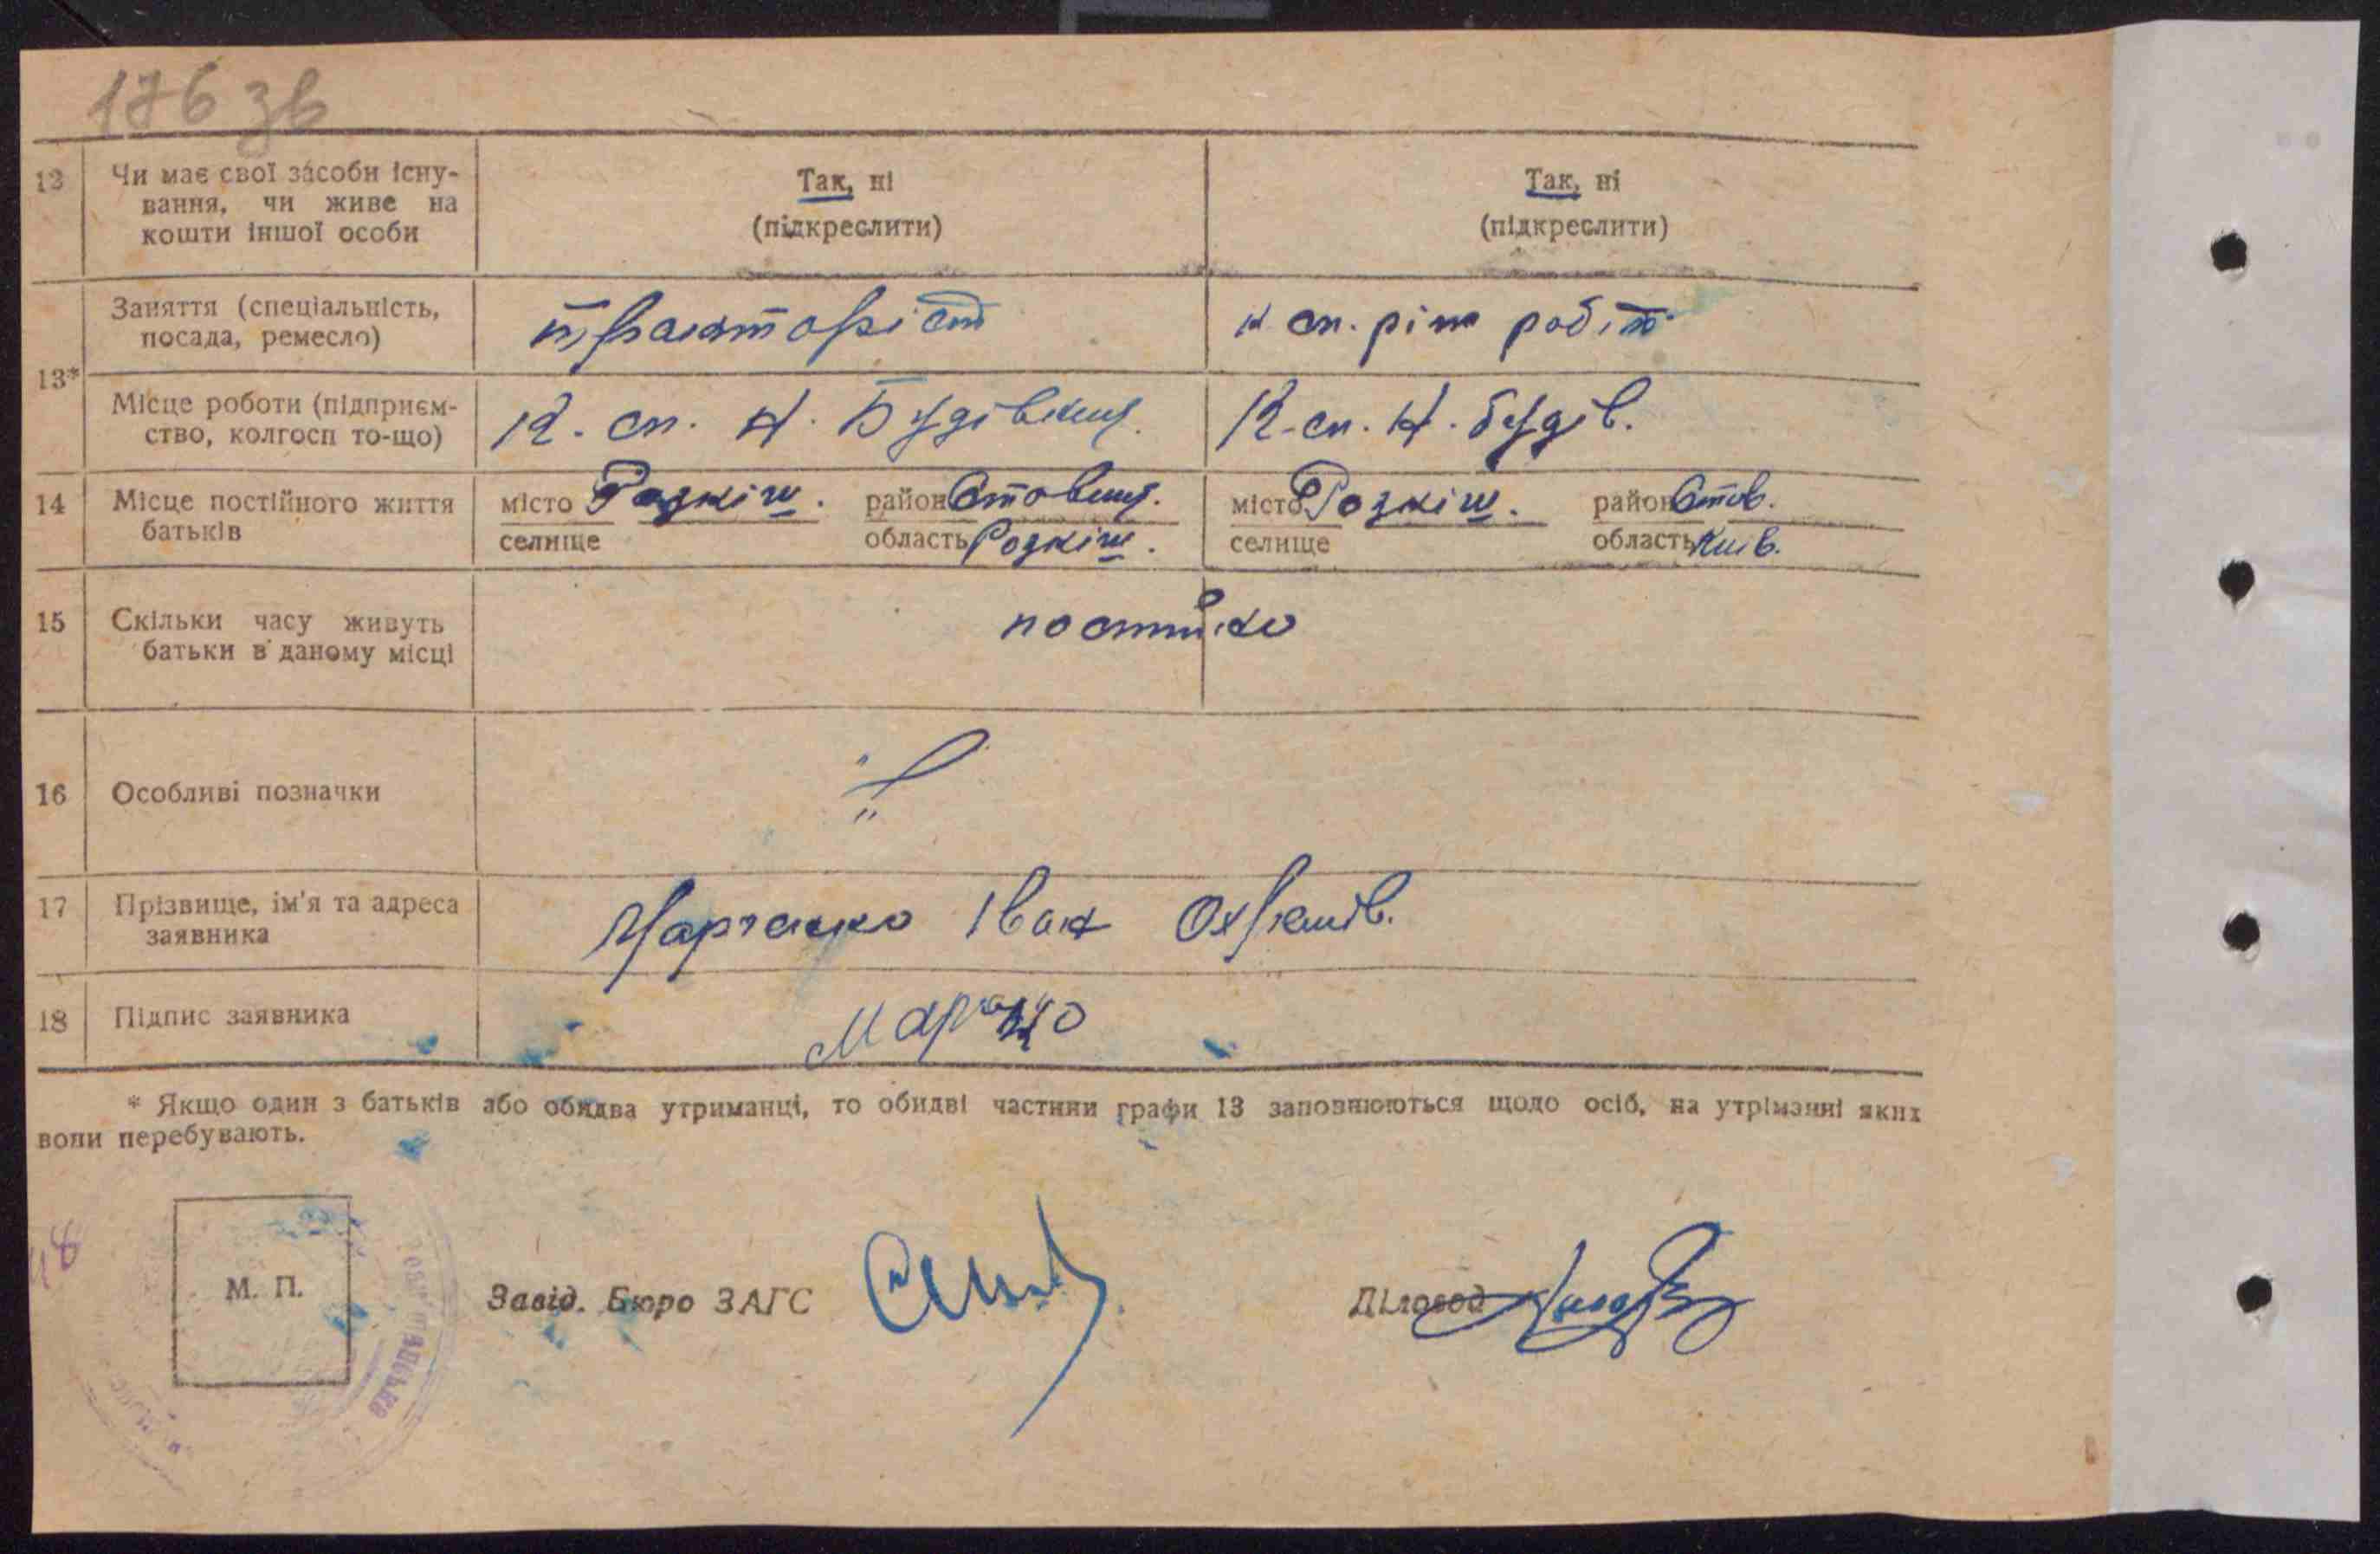 176 зв
12 Чи має свої засоби існу-
вання, чи живе на
кошти іншої особи
Так, ні
(підкреслити)
Так, ні
(підкреслити)
13*
Заняття (спеціальність,
посада, ремесло)
тракторіст
к сп. різн робіт
Місце роботи (підприєм-
ство, колгосп то-що)
К. сп. Н. Будівниц.
К-сп. Н. Будів.
14 Місце постійного життя
батьків
місто Розкіш. район Ставищ.
селище область Розкіш.
місто Розкіш. район Став.
селище область Київ.
15 Скільки часу живуть
батьки в даному місці
постійно
16 Особливі позначки
17 Прізвище, ім'я та адреса
заявника
Марченко Іван
18 Підпис заявника
* Якщо один з батьків або обидва утриманці, то обидві частини графи 13 заповнюються щодо осіб, на утріманні яких
вони перебувають.
М. П.
Завід. Бюро ЗАГС
Діловод